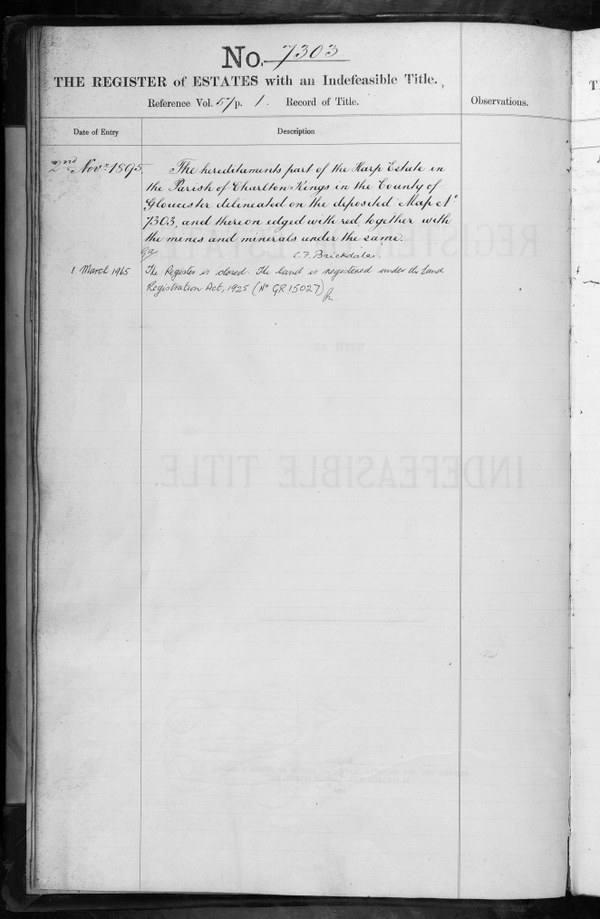 No. 7303
THE REGISTER of ESTATES with an Indefeasible Title.
Reference Vol. 57/p. 1. Record of Title.
Observations.
Date of Entry
Description
2nd Novr 1895
The hereditaments part of the Harp Estate in
the Parish of Charlton Kings in the County of
Gloucester delineated on the deposited Map No
7303, and thereon edged with red, together with
the mines and minerals under the same.
C.F. Brickdale.
1 March 1965
The Register is closed. The land is registered under the Land
Registration Act, 1925 (No GR15027)